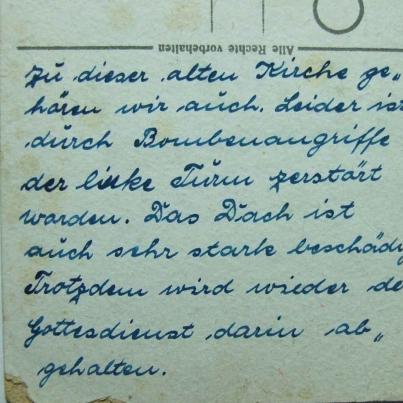 Alle Rechte vorbehalten
Zu dieser alten Kirche ge„
hören wir auch. Leider ist
durch Bombenangriffe
der linke Turm zerstört
worden. Das Dach ist
auch sehr stark beschädig
Trotzdem wird wieder de
Gottesdienst darin ab„
gehalten.